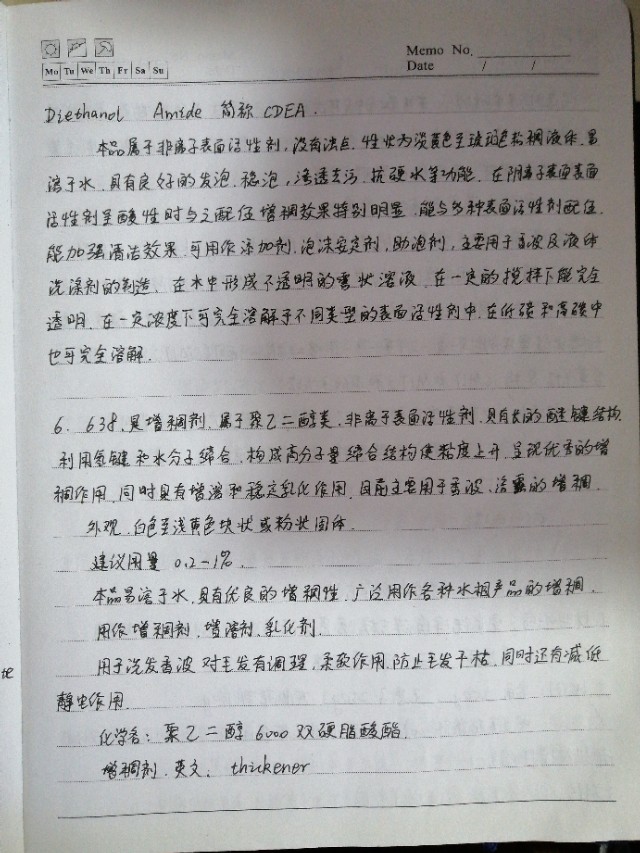 Memo No.
Mo Tu We Th Fr Sa Su
Date / /
Diethanol Amide 简称 CDEA.
本品属于非离子表面活性剂,没有浊点,性状为淡黄色至琥珀色粘稠液体,易
溶于水,具有良好的发泡,稳泡,渗透去污,抗硬水等功能,在阴离子表面表面
活性剂呈酸性时与之配伍增稠效果特别明显,能与多种表面活性剂配伍,
能加强清洁效果,可用作添加剂,泡沫安定剂,助泡剂,主要用于香波及液体
洗涤剂的制造,在水中形成不透明的雾状溶液,在一定的搅拌下能完全
透明,在一定浓度下可完全溶解于不同类型的表面活性剂中,在低碳和高碳中
也可完全溶解.
6. 638,是增稠剂,属于聚乙二醇类,非离子表面活性剂,具有长的醚键结构,
利用氢键和水分子缔合,构成高分子量缔合结构使黏度上升,呈现优秀的增
稠作用,同时具有增溶和稳定乳化作用,目前主要用于香波,洁露的增稠.
外观,白色至浅黄色块状或粉状固体.
建议用量 0.2-1%.
本品易溶于水,具有优良的增稠性,广泛用作各种水相产品的增稠,
用作增稠剂,增溶剂,乳化剂.
用于洗发香波对毛发有调理,柔软作用,防止毛发干枯,同时还有减低
静电作用
化学名:聚乙二醇6000双硬脂酸酯.
增稠剂.英文: thickener